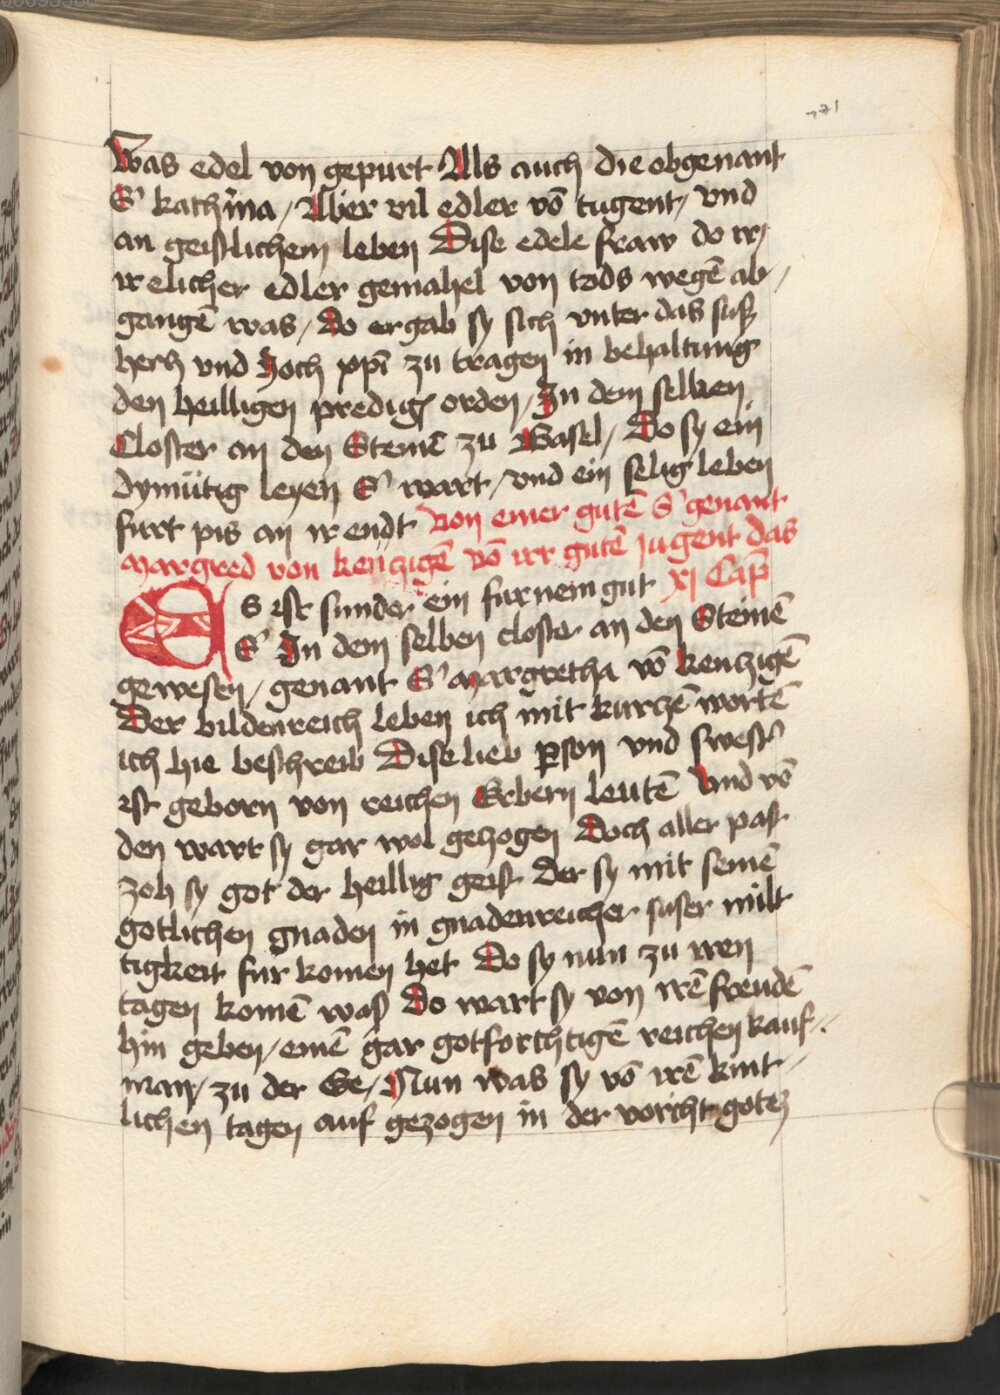 171
Was edel von gepurt Als auch die obgenant
S' kath'ina / Aber vil edler vō tugent / vnd
an geistlichem leben Dise edele fraw do ir
ir elicher edler gemahel von tods wegē ab /
gangē was / do ergab sy sich vnter das suß
herh vnd Joch xp̄i zu tragen in behaltung
den heilligen predig' orden / In dem selben
Closter an den Steinē zu Basel / Do sy ein
dymütig leyen S' wart / vnd ein selig leben
furt pis an ir endt von einer gutē S' genant
Margred von kenczigē vō irr gutē jugent das
xj Cap̄
ES ist sunder ein furnem gut
S' In dem selben closter an den Steinē
gewesen / genant S' Margretha vō kenczigē
Der bildenreich leben ich mit kurczē wortē
ich hie beschreib Dise lieb ꝑson vnd swest'
ist geborn von reichen Erbern leutē Vnd vō
den wart sy gar wol gezogen Doch aller past
zoh sy got der heillig geist Der sy mit seinē
gotlichen gnaden in gnadenreicher suser milt
tigkeit für komen het Do sy nun zu iren
tagen komē waß Do wart sy von irē freudē
hin geben / einē gar gotforchtigē reichen kauf /
man / zu der Ee / Nun was sy vō irē kint /
lichen tagen auf gezogen in der vorcht gotez